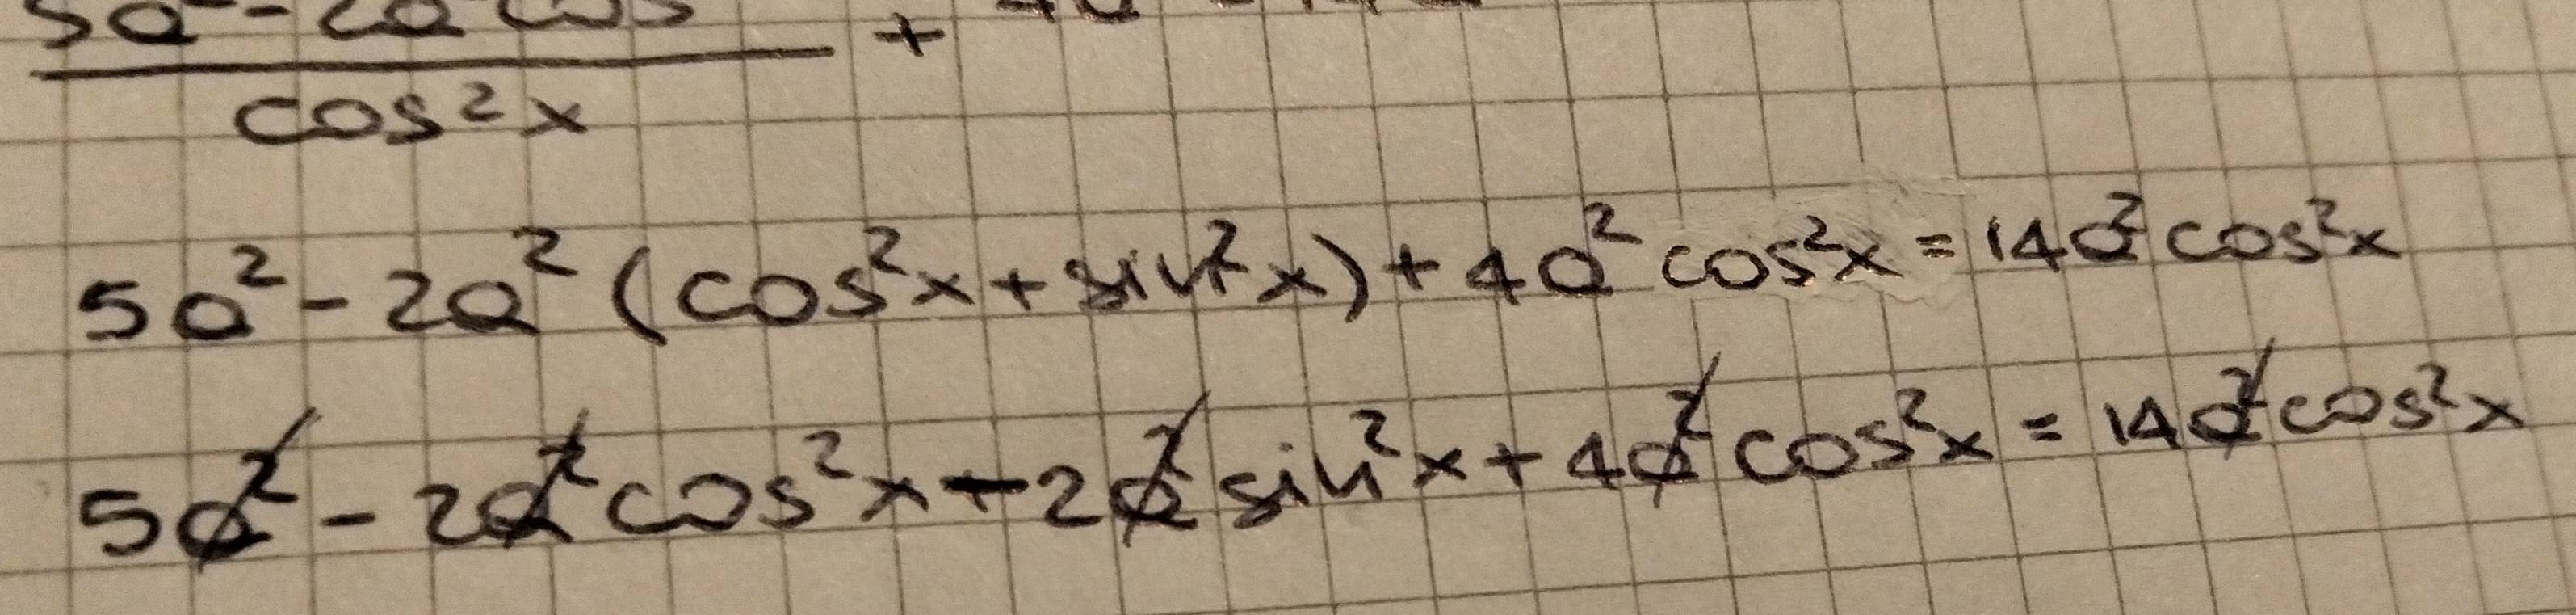 +
cos²x
5a² - 2a² (cos²x + sin²x) + 4a² cos²x = 14a² cos²x
5a² - 2a² cos²x - 2a² sin²x + 4a² cos²x = 14a² cos²x